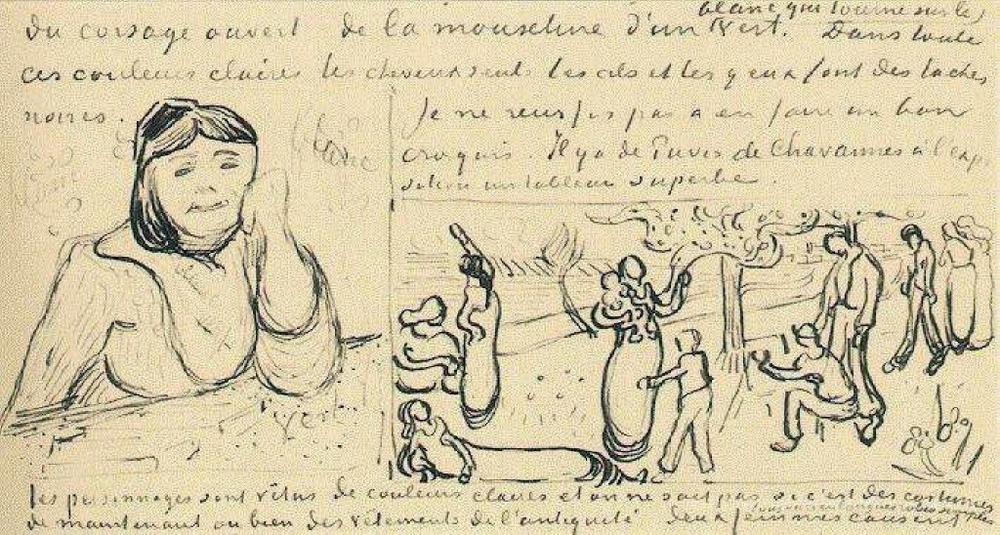 blanc qui tourne sur le
du corsage ouvert de la mousseline d'un vert. Dans toute
ces couleurs claires les cheveux seuls les cils et les yeux font des taches
noires.
blanc
vert
Je ne reussis pas a en faire un bon
croquis. Il y a de Puvis de Chavannes à l'expo
sition un tableau superbe.
les personnages sont vêtus de couleurs claires et on ne sait pas si c'est des costumes
de maintenant ou bien des vêtements de l'antiquité deux femmes causent
robes simples